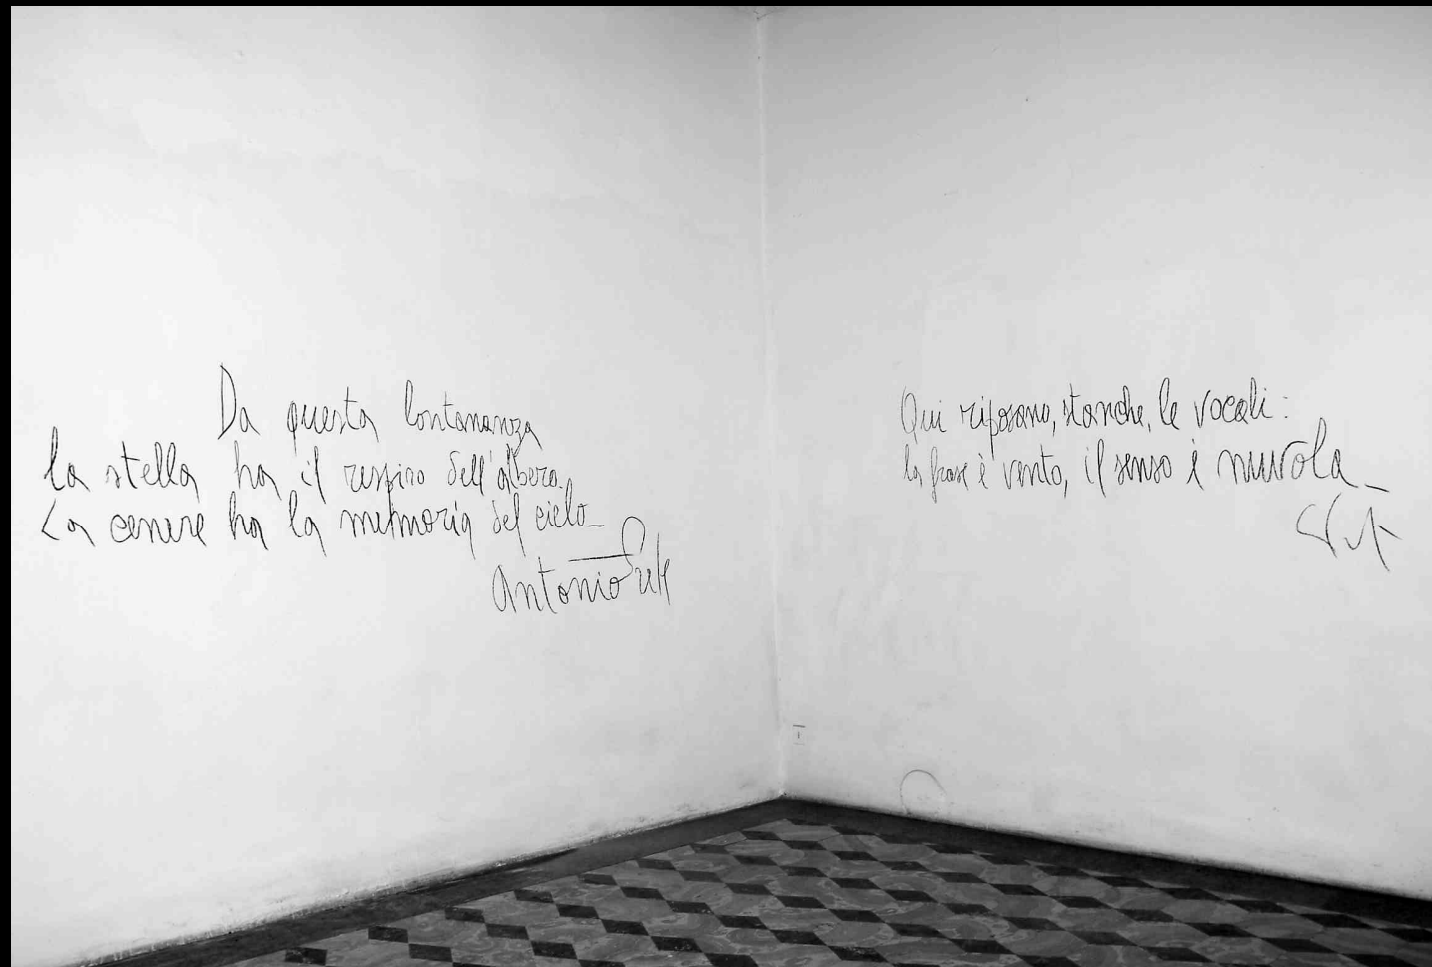 Da questa lontananza
la stella ha il respiro dell'albero.
La cenere ha la memoria del cielo_
Antonio Prete
Qui riposano, stanche, le vocali:
la frase è vento, il senso è nuvola_